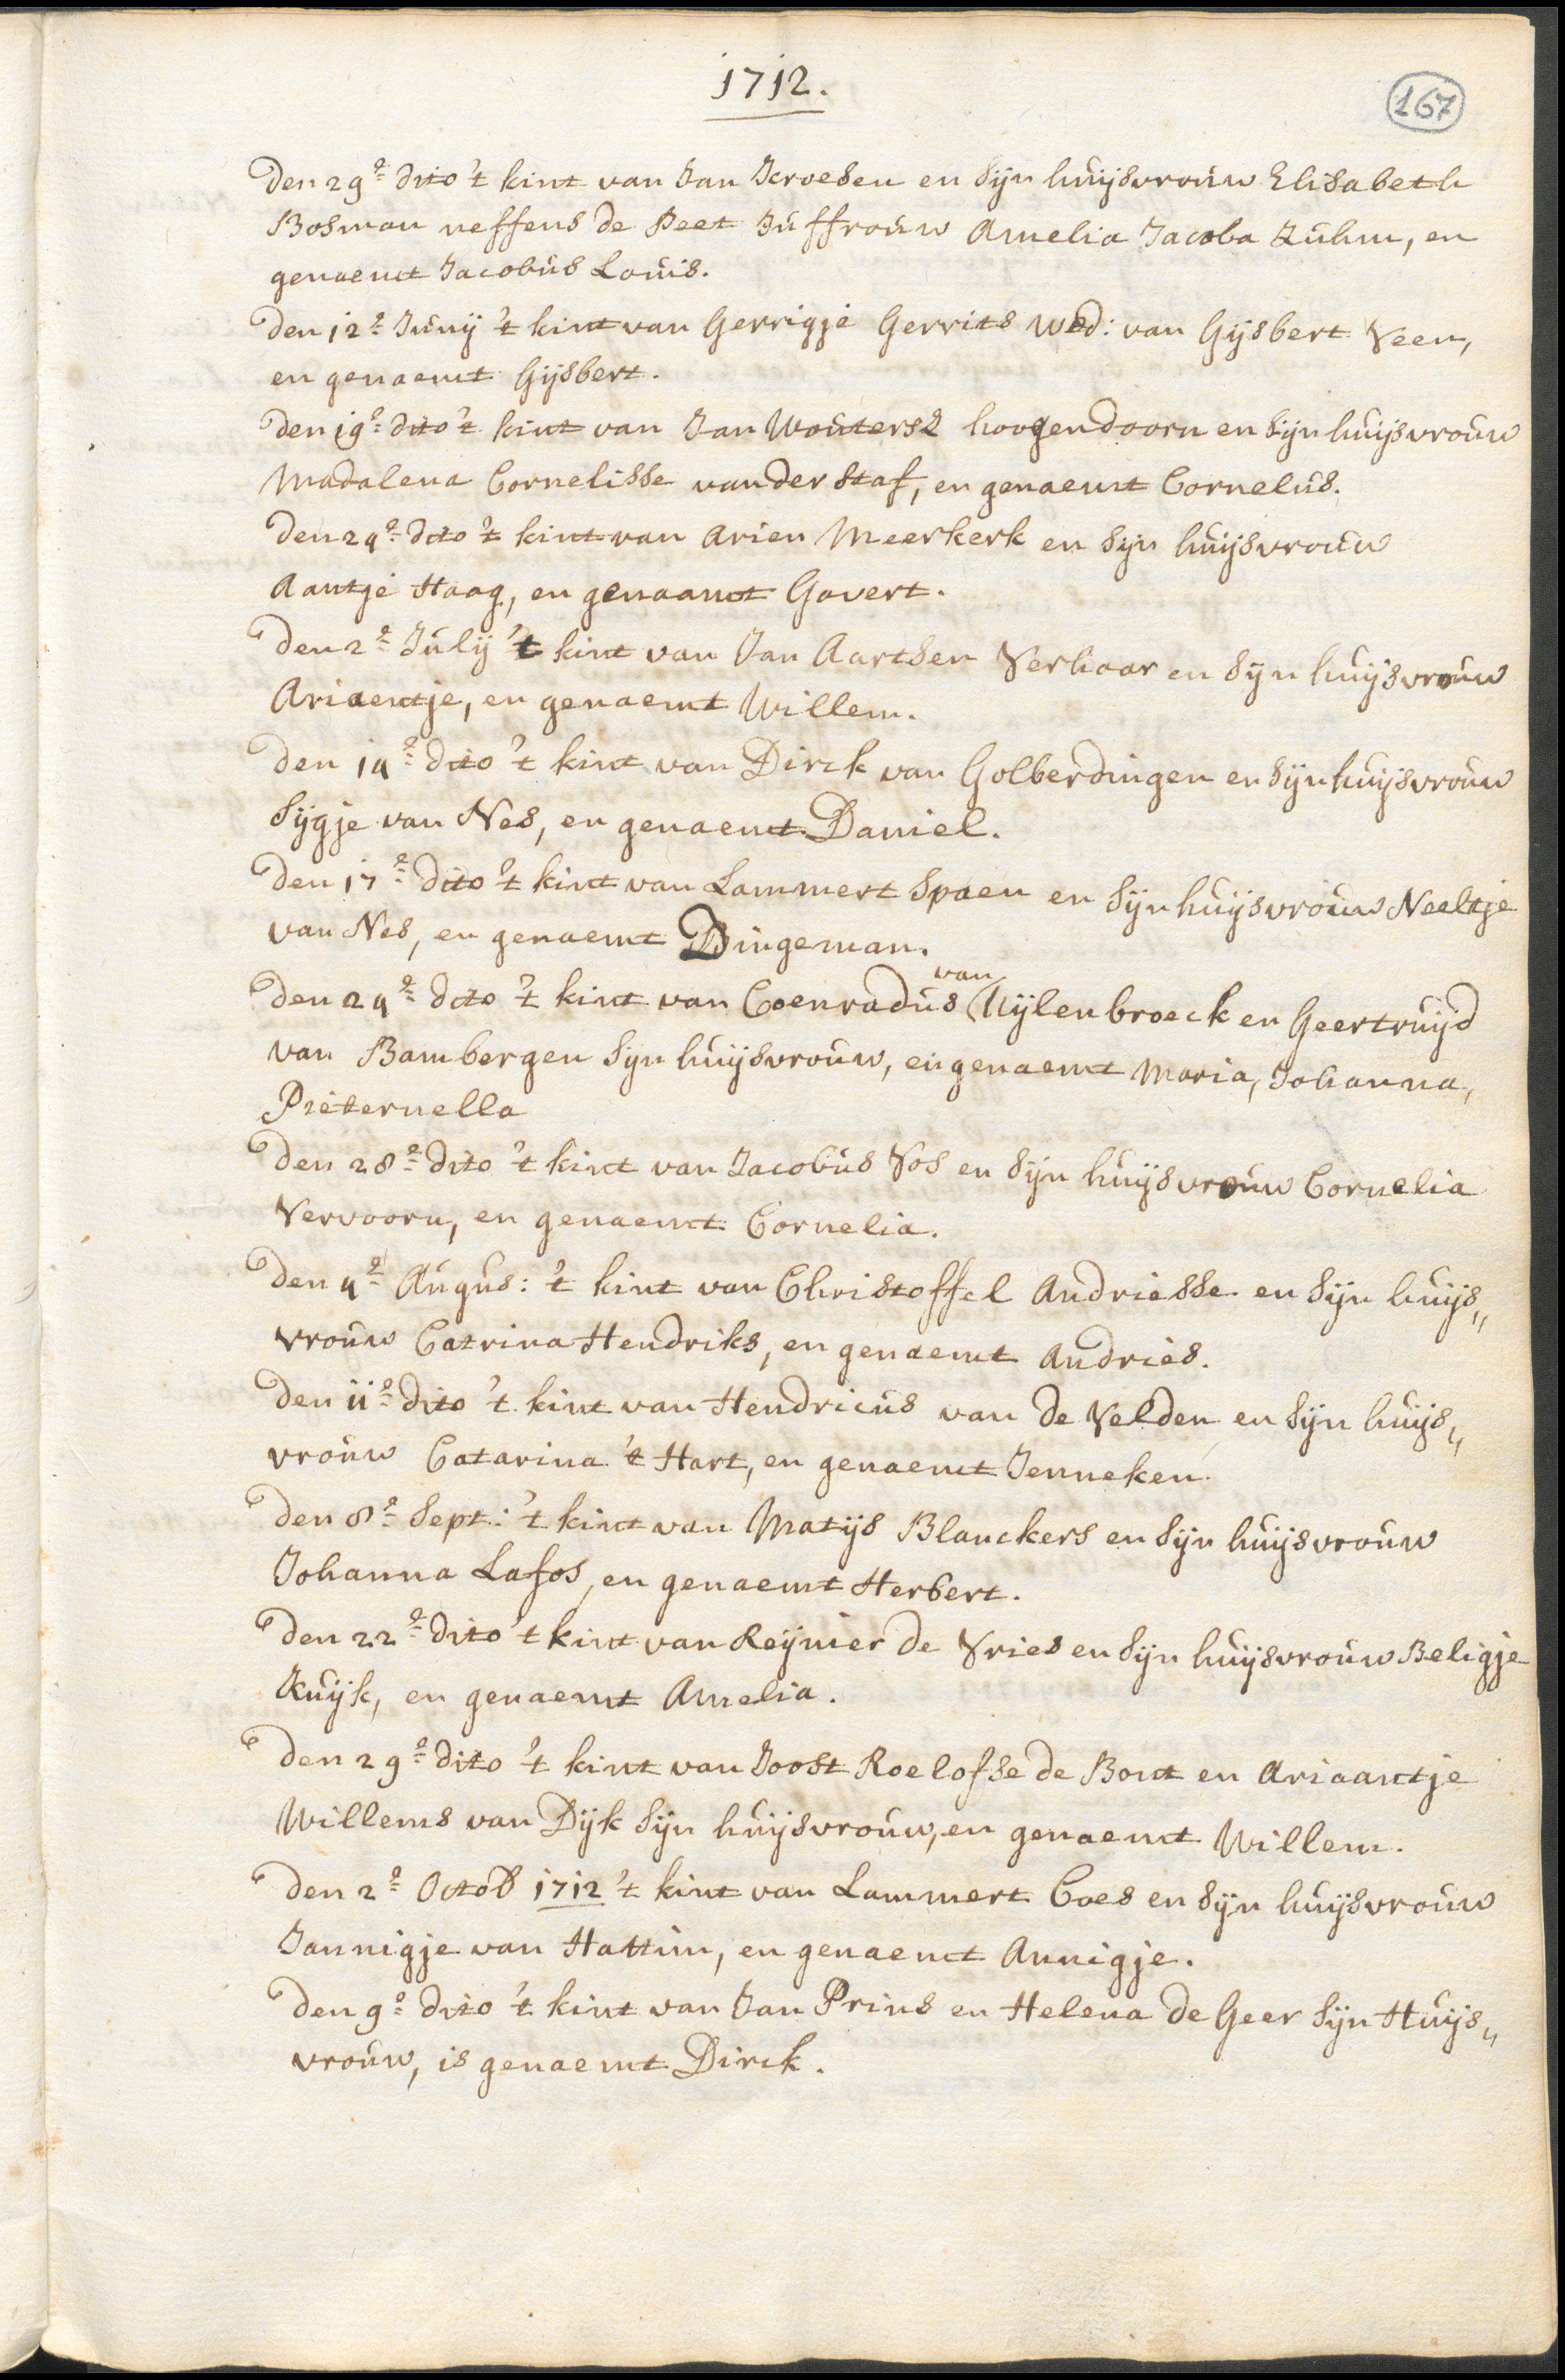 1712.
167
Den 29e dito 't kint van Jan Kroesen en sijn huijsvrouw Elisabeth
Bosman neffens de Peet Juffrouw Amelia Jacoba Kuhm, en
genaemt Jacobus Louis.
Den 12e Junij 't kint van Gerrigje Gerrits Wed: van Gijsbert Veen,
en genaemt Gijsbert.
Den 19e dito 't kint van Jan Woutersz hoogendoorn en sijn huijsvrouw
Madalena Cornelisse vander Staf, en genaemt Cornelus.
Den 24e dito 't kint van Arien Meerkerk en sijn huijsvrouw
Aantje Haag, en genaamt Govert.
Den 2e Julij 't kint van Jan Aartsen Verhaar en sijn huijsvrouw
Ariaentje, en genaemt Willem.
Den 14e dito 't kint van Dirck van Golberdingen en sijn huijsvrouw
Sijgje van Nes, en genaemt Daniel.
Den 17e dito 't kint van Lammert Spaen en sijn huijsvrouw Neeltje
van Nes, en genaemt Dingeman.
Den 24e dito 't kint van Coenradus van Uijlenbroeck en Geertruijd
van Bambergen sijn huijsvrouw, en genaemt Maria, Johanna,
Pieternella
Den 28e dito 't kint van Jacobus Vos en sijn huijsvrouw Cornelia
Vervoorn, en genaemt Cornelia.
Den 4e Augus: 't kint van Christoffel Andriesse en sijn huijs„
vrouw Catrina Hendriks, en genaemt Andries.
Den 11e dito 't kint van Hendricus van de Velden en sijn huijs„
vrouw Catarina 't Hart, en genaemt Jenneken.
Den 8e Sept: 't kint van Matijs Blanckers en sijn huijsvrouw
Johanna Lafos, en genaemt Herbert.
Den 22e dito 't kint van Reijnier de Vries en sijn huijsvrouw Beligje
Kuijk, en genaemt Amelia.
Den 29e dito 't kint van Joost Roelofse de Bont en Ariaantje
Willems van Dijk sijn huijsvrouw, en genaemt Willem.
Den 2e Octob 1712 't kint van Lammert Coes en sijn huijsvrouw
Jannigje van Hattim, en genaemt Annigje.
Den 9e dito 't kint van Jan Prins en Helena de Geer sijn Huijs„
vrouw, is genaemt Dirck.